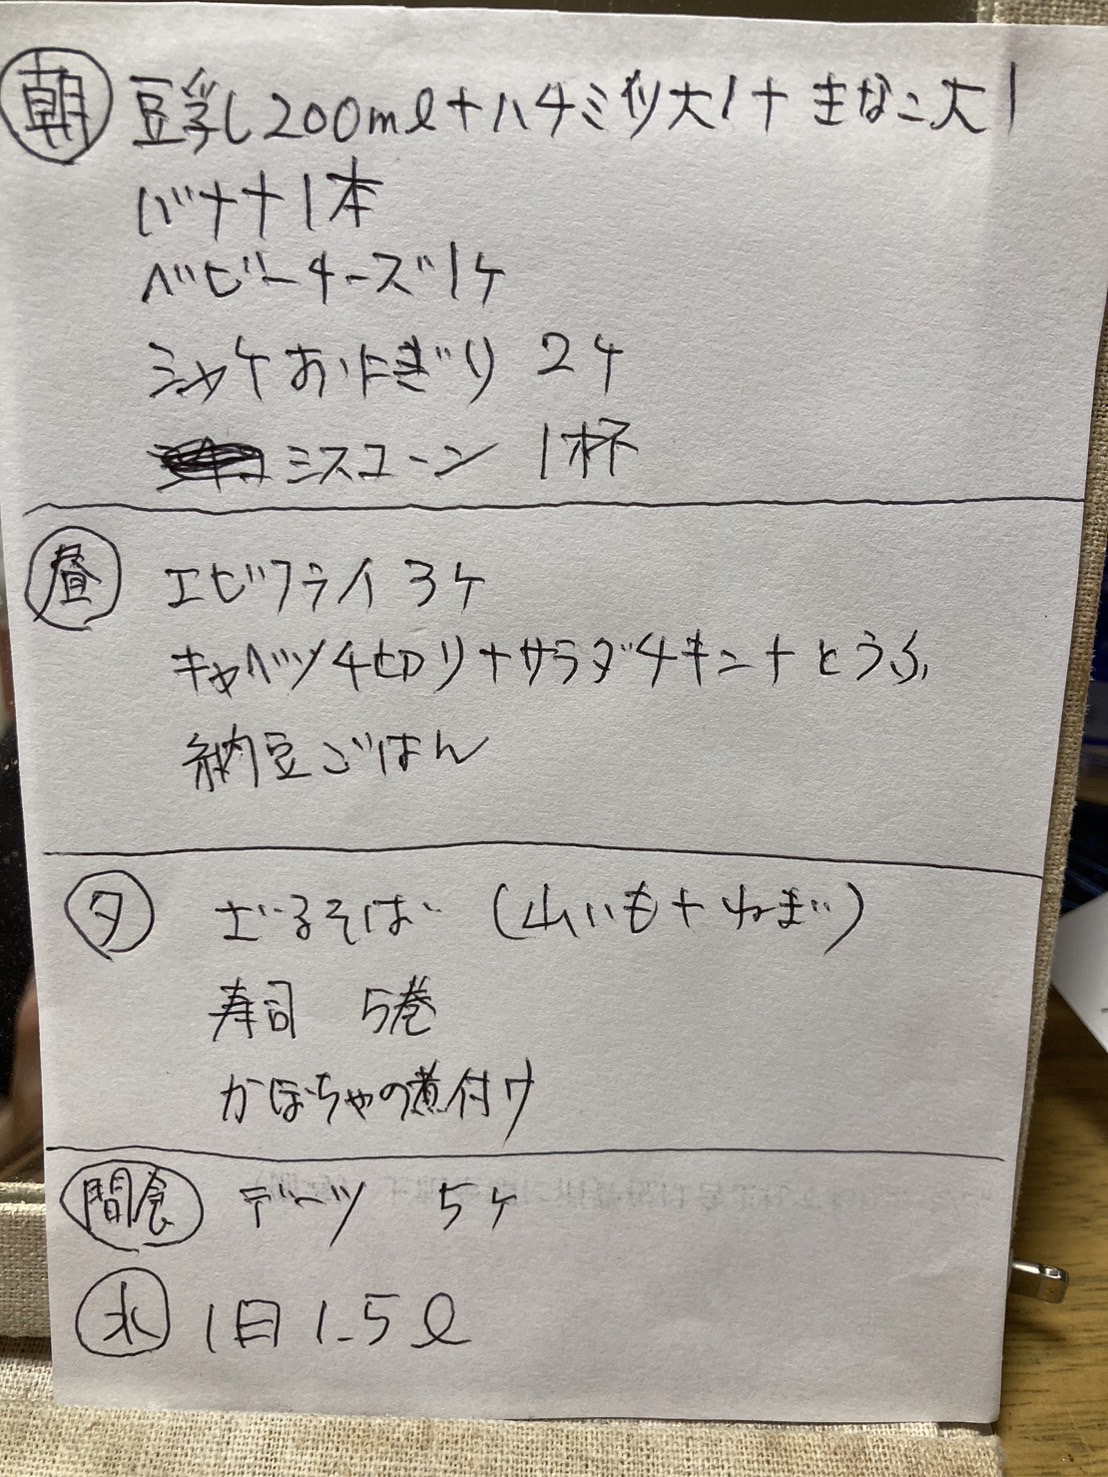 朝 豆乳200mℓ+ハチミツ大1+きなこ大1
バナナ1本
ベビーチーズ1ケ
シャケおにぎり 2ケ
ミスコーン 1杯
昼 エビフライ 3ケ
キャベツ千切り+サラダチキン+とうふ
納豆ごはん
夕 ざるそば (山いも+ねぎ)
寿司 5巻
かぼちゃの煮付け
間食 デーツ 5ケ
水 1日1.5ℓ